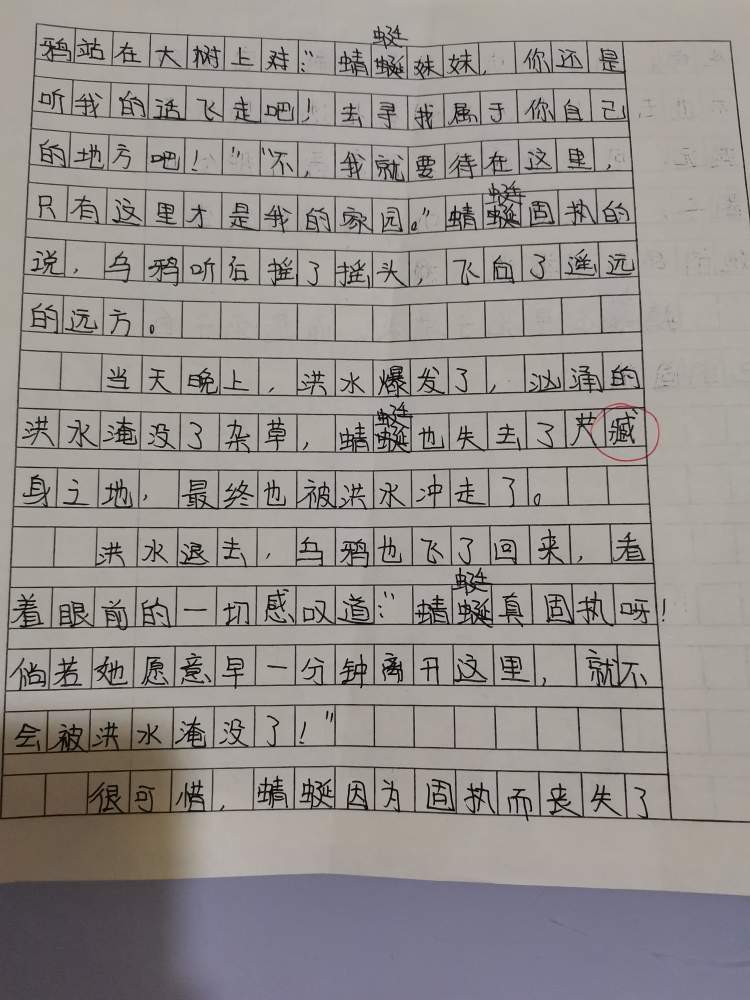 鸦站在大树上对:"蜻蜓妹妹,你还是
听我的话飞走吧!去寻我属于你自己
的地方吧!""不,我就要待在这里,
只有这里才是我的家园。"蜻蜓固执的
说,乌鸦听后摇了摇头,飞向了遥远
的远方。
当天晚上,洪水爆发了,汹涌的
洪水淹没了杂草,蜻蜓也失去了臧
身之地,最终也被洪水冲走了。
洪水退去,乌鸦也飞了回来,看
着眼前的一切感叹道:"蜻蜓真固执呀!
倘若她愿意早一分钟离开这里,就不
会被洪水淹没了!"
很可惜,蜻蜓因为固执而丧失了